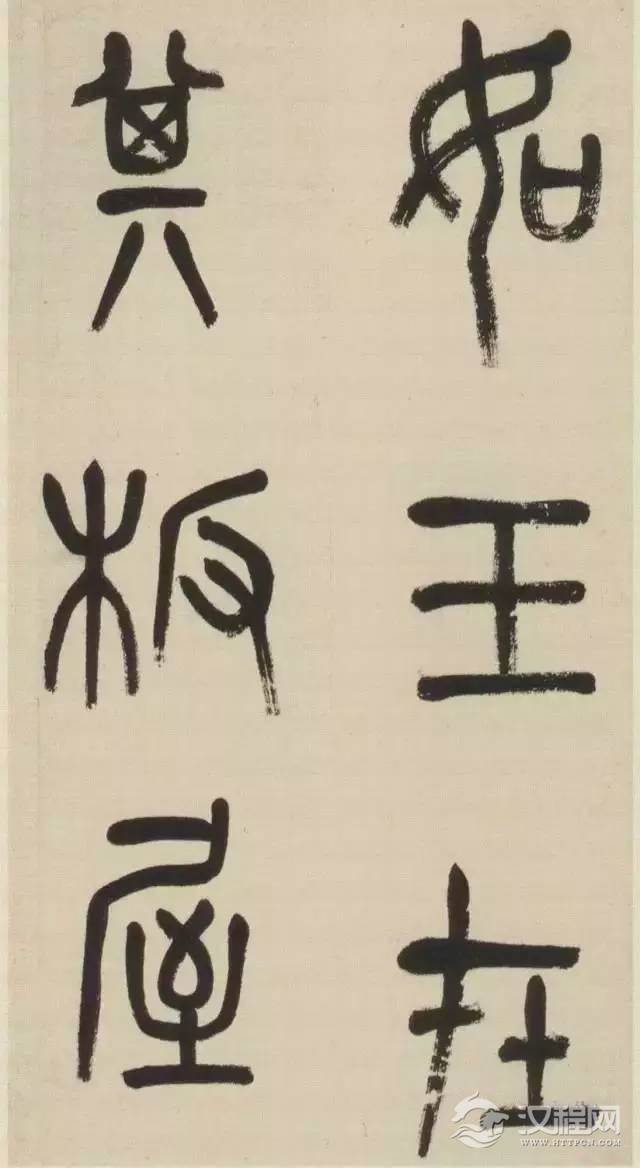 如玉在
其板屋
汉程网
WWW.HTTPCN.COM